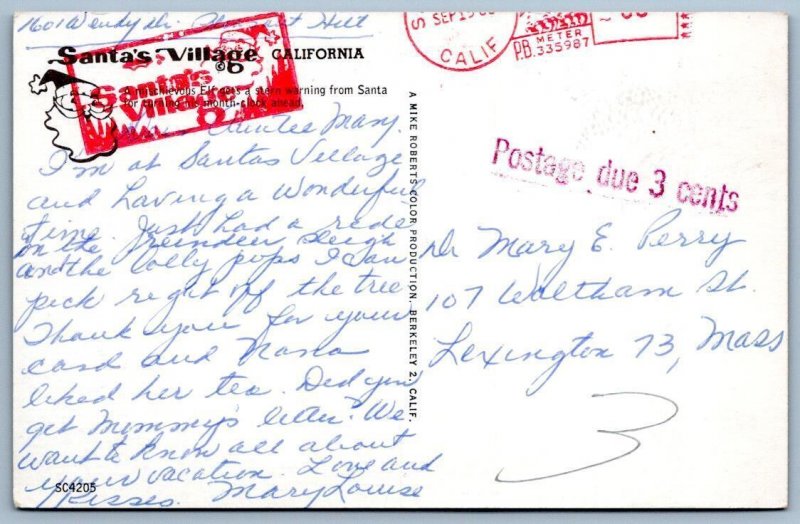 1601 Wendy Dr. Pleasant Hill
Santa's Village CALIFORNIA
A mischievous Elf gets a stern warning from Santa
for turning his month-clock ahead.
Santa's
Village
Auntee Mary.
I'm at Santas Village
and having a wonderful
time. Just had a ride
on the reindeer sleigh
and the lolly pops I can
pick right off the tree
Thank you for your
card and Nana
liked her tea. Did you
get Mommy's letter? We
want to know all about
your vacation. Love and
Kisses. Mary Louise
SC4205
A MIKE ROBERTS COLOR PRODUCTION, BERKELEY 2, CALIF.
SEP 15
CALIF
METER
P.B. 335987
Postage due 3 cents
Dr Mary E. Perry
107 Waltham St.
Lexington 73, Mass
3